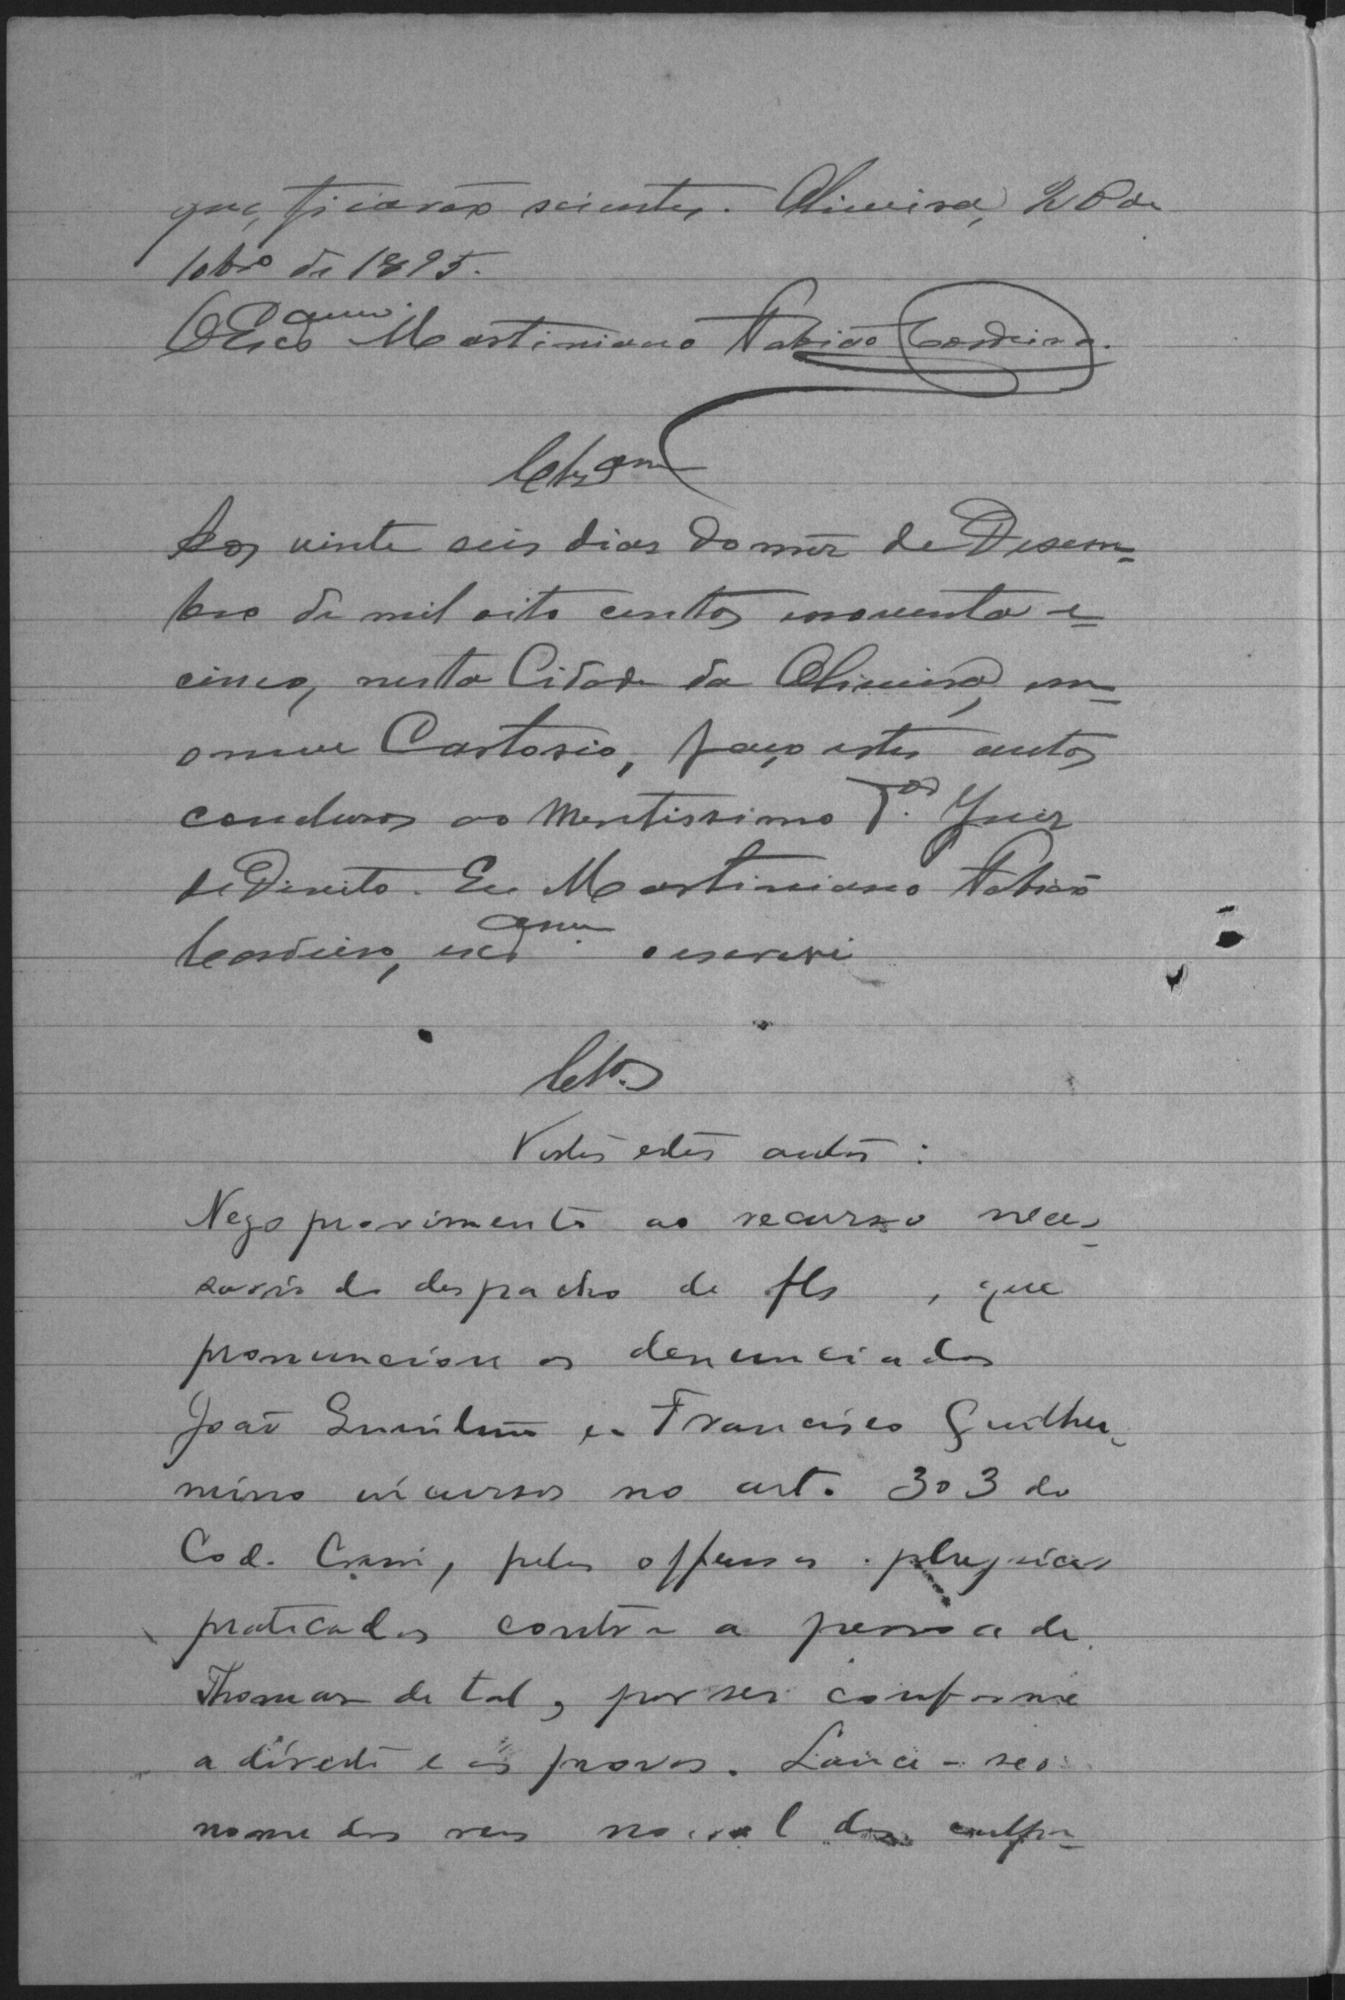 que, ficarão scientes. Oliveira, 26 de
10bro de 1895.
O Escam Martiniano Fabião Cordeiro.
Clsam
Aos vinte seis dias do mez de Desem-
bro de mil oito centos enoventa e
cinco, nesta Cidade da Oliveira, em
o meu Cartorio, faço estes autos
conclusos ao Meritissimo Dor Juiz
de Direito. Eu Martiniano Fabião
Cordeiro, escam o escrevi
Clsos
Vistos estes autos:
Nego provimento ao recurso neces-
sario do despacho de fls , que
pronunciou os denunciados
João e Francisco Guilher-
mino incursos no art. 303 do
Cod. Crim, pelas offensas physicas
praticadas contra a pessoa de
Thomas de tal, por ser conforme
a direito e ás provas. Lance-se o
nome dos reus no rol dos culpa-